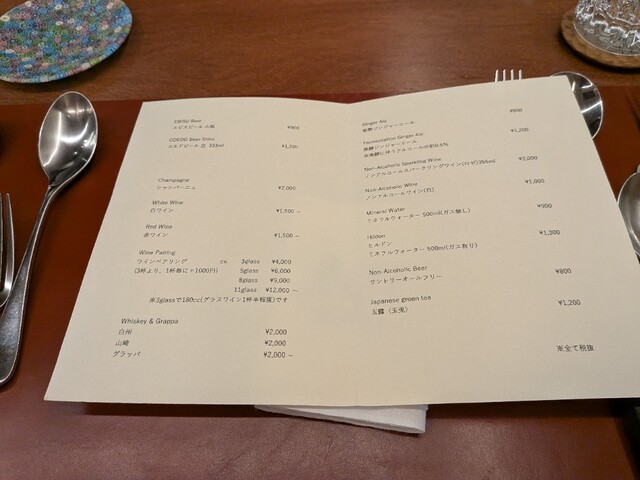 EBISU Beer
エビスビール 小瓶 ¥900
COEDO Beer Shiro
コエドビール 白 333ml ¥1,200
Champagne
シャンパーニュ ¥2,000
White Wine
白ワイン ¥1,500 ~
Red Wine
赤ワイン ¥1,500 ~
Wine Pairing
ワインペアリング 3glass ¥4,000
(3杯より、1杯毎に+1000円) 5glass ¥6,000
8glass ¥9,000
11glass ¥12,000 ~
※3glassで180cc(グラスワイン1杯半程度)です
Whiskey & Grappa
白州 ¥2,000
山崎 ¥2,000
グラッパ ¥2,000 ~
Ginger Ale ¥800
ジンジャーエール
Fermentation Ginger Ale ¥1,200
発酵ジンジャーエール
※発酵に伴うアルコール分約0.6%
Non-Alcoholic Sparkling Wine
ノンアルコールスパークリングワイン(ロゼ)355ml
Non-Alcoholic Wine ¥1,000
ノンアルコールワイン(白)
Mineral Water ¥900
ミネラルウォーター 500ml(ガス無し)
Hildon ¥1,300
ヒルドン
ミネラルウォーター 500ml(ガス有り)
Non-Alcoholic Beer ¥800
サントリーオールフリー
Japanese green tea ¥1,200
玉露(玉兎)
※全て税抜